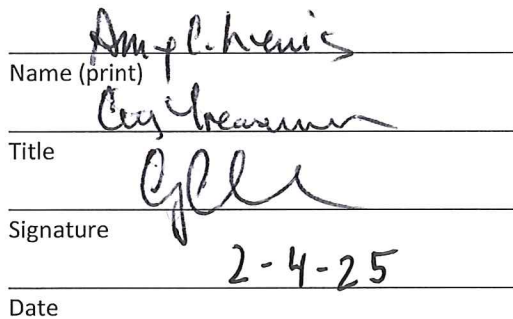 Amy C. Lewis
Name (print)
City Treasurer
Title
Signature
2-4-25
Date